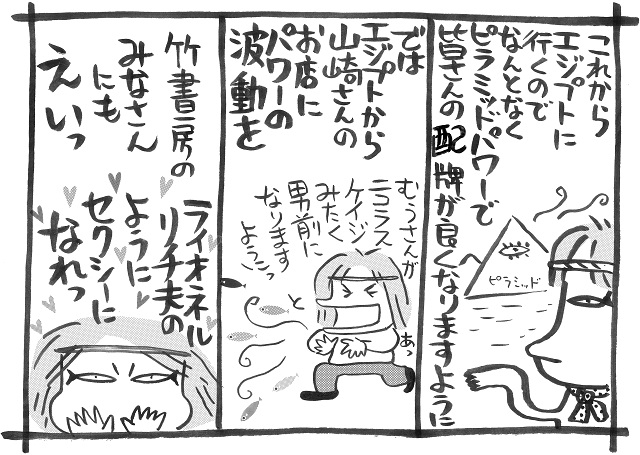 これから
エジプトに
行くので
なんとなく
ピラミッドパワーで
皆さんの配牌が良くなりますように
ピラミッド
では
エジプトから
山崎さんの
お店に
パワーの
波動を
むうさんが
ニコラス
ケイジ
みたく
男前に
なります
ようにっ
と
あっ
竹書房の
みなさん
にも
えいっ
ライオネル
リチ夫の
ように
セクシーに
なれっ